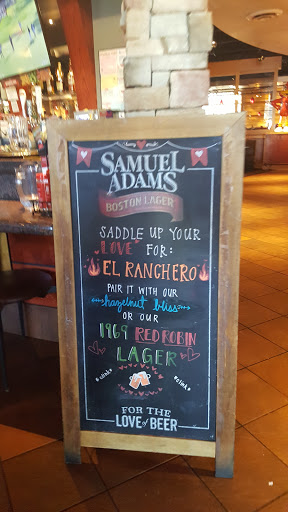 SAMUEL
ADAMS
BOSTON LAGER
SADDLE UP YOUR
"LOVE" FOR:
EL RANCHERO
PAIR IT WITH OUR
hazelnut bliss
OR OUR
1969 RED ROBIN
LAGER
*clink*
*clink*
FOR THE
LOVE of BEER